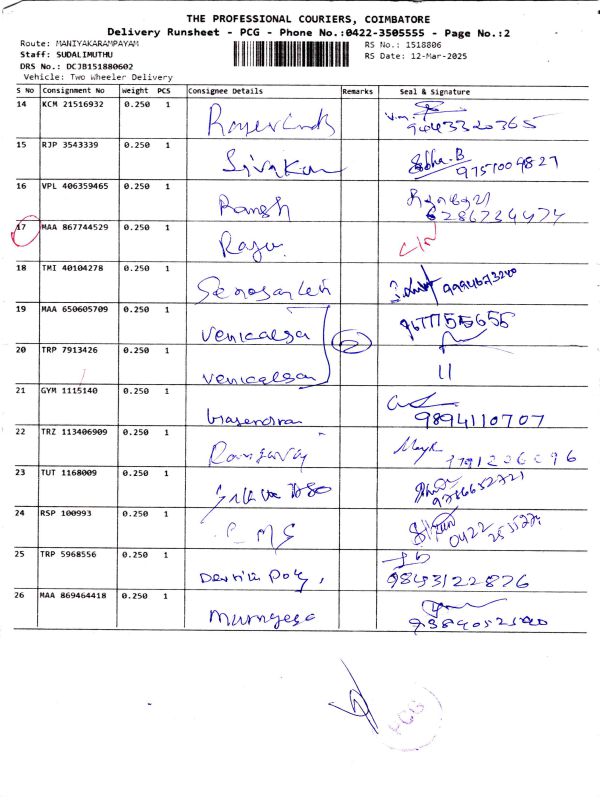 THE PROFESSIONAL COURIERS, COIMBATORE
Delivery Runsheet - PCG - Phone No.:0422-3505555 - Page No.:2
Route: MANIYAKARAMPAYAM RS No.: 1518806
Staff: SUDALIMUTHU RS Date: 12-Mar-2025
DRS No.: DCJB151880602
Vehicle: Two Wheeler Delivery
S No Consignment No Weight PCS Consignee Details Remarks Seal & Signature
14 KCM 21516932 0.250 1
9043320365
15 RJP 3543339 0.250 1 Sivakan Subha.B
9751004827
16 VPL 406359465 0.250 1 Ramesh
6286734474
17 MAA 867744529 0.250 1 Raju
18 TMI 40104278 0.250 1
19 MAA 650605709 0.250 1 venkatesa 9677755655
20 TRP 7913426 0.250 1 venkatesan 2 11
21 GYM 1115140 0.250 1
9894110707
22 TRZ 113406909 0.250 1
23 TUT 1168009 0.250 1
24 RSP 100993 0.250 1 0422
25 TRP 5968556 0.250 1
9843122876
26 MAA 869464418 0.250 1 Murugesa
PCG